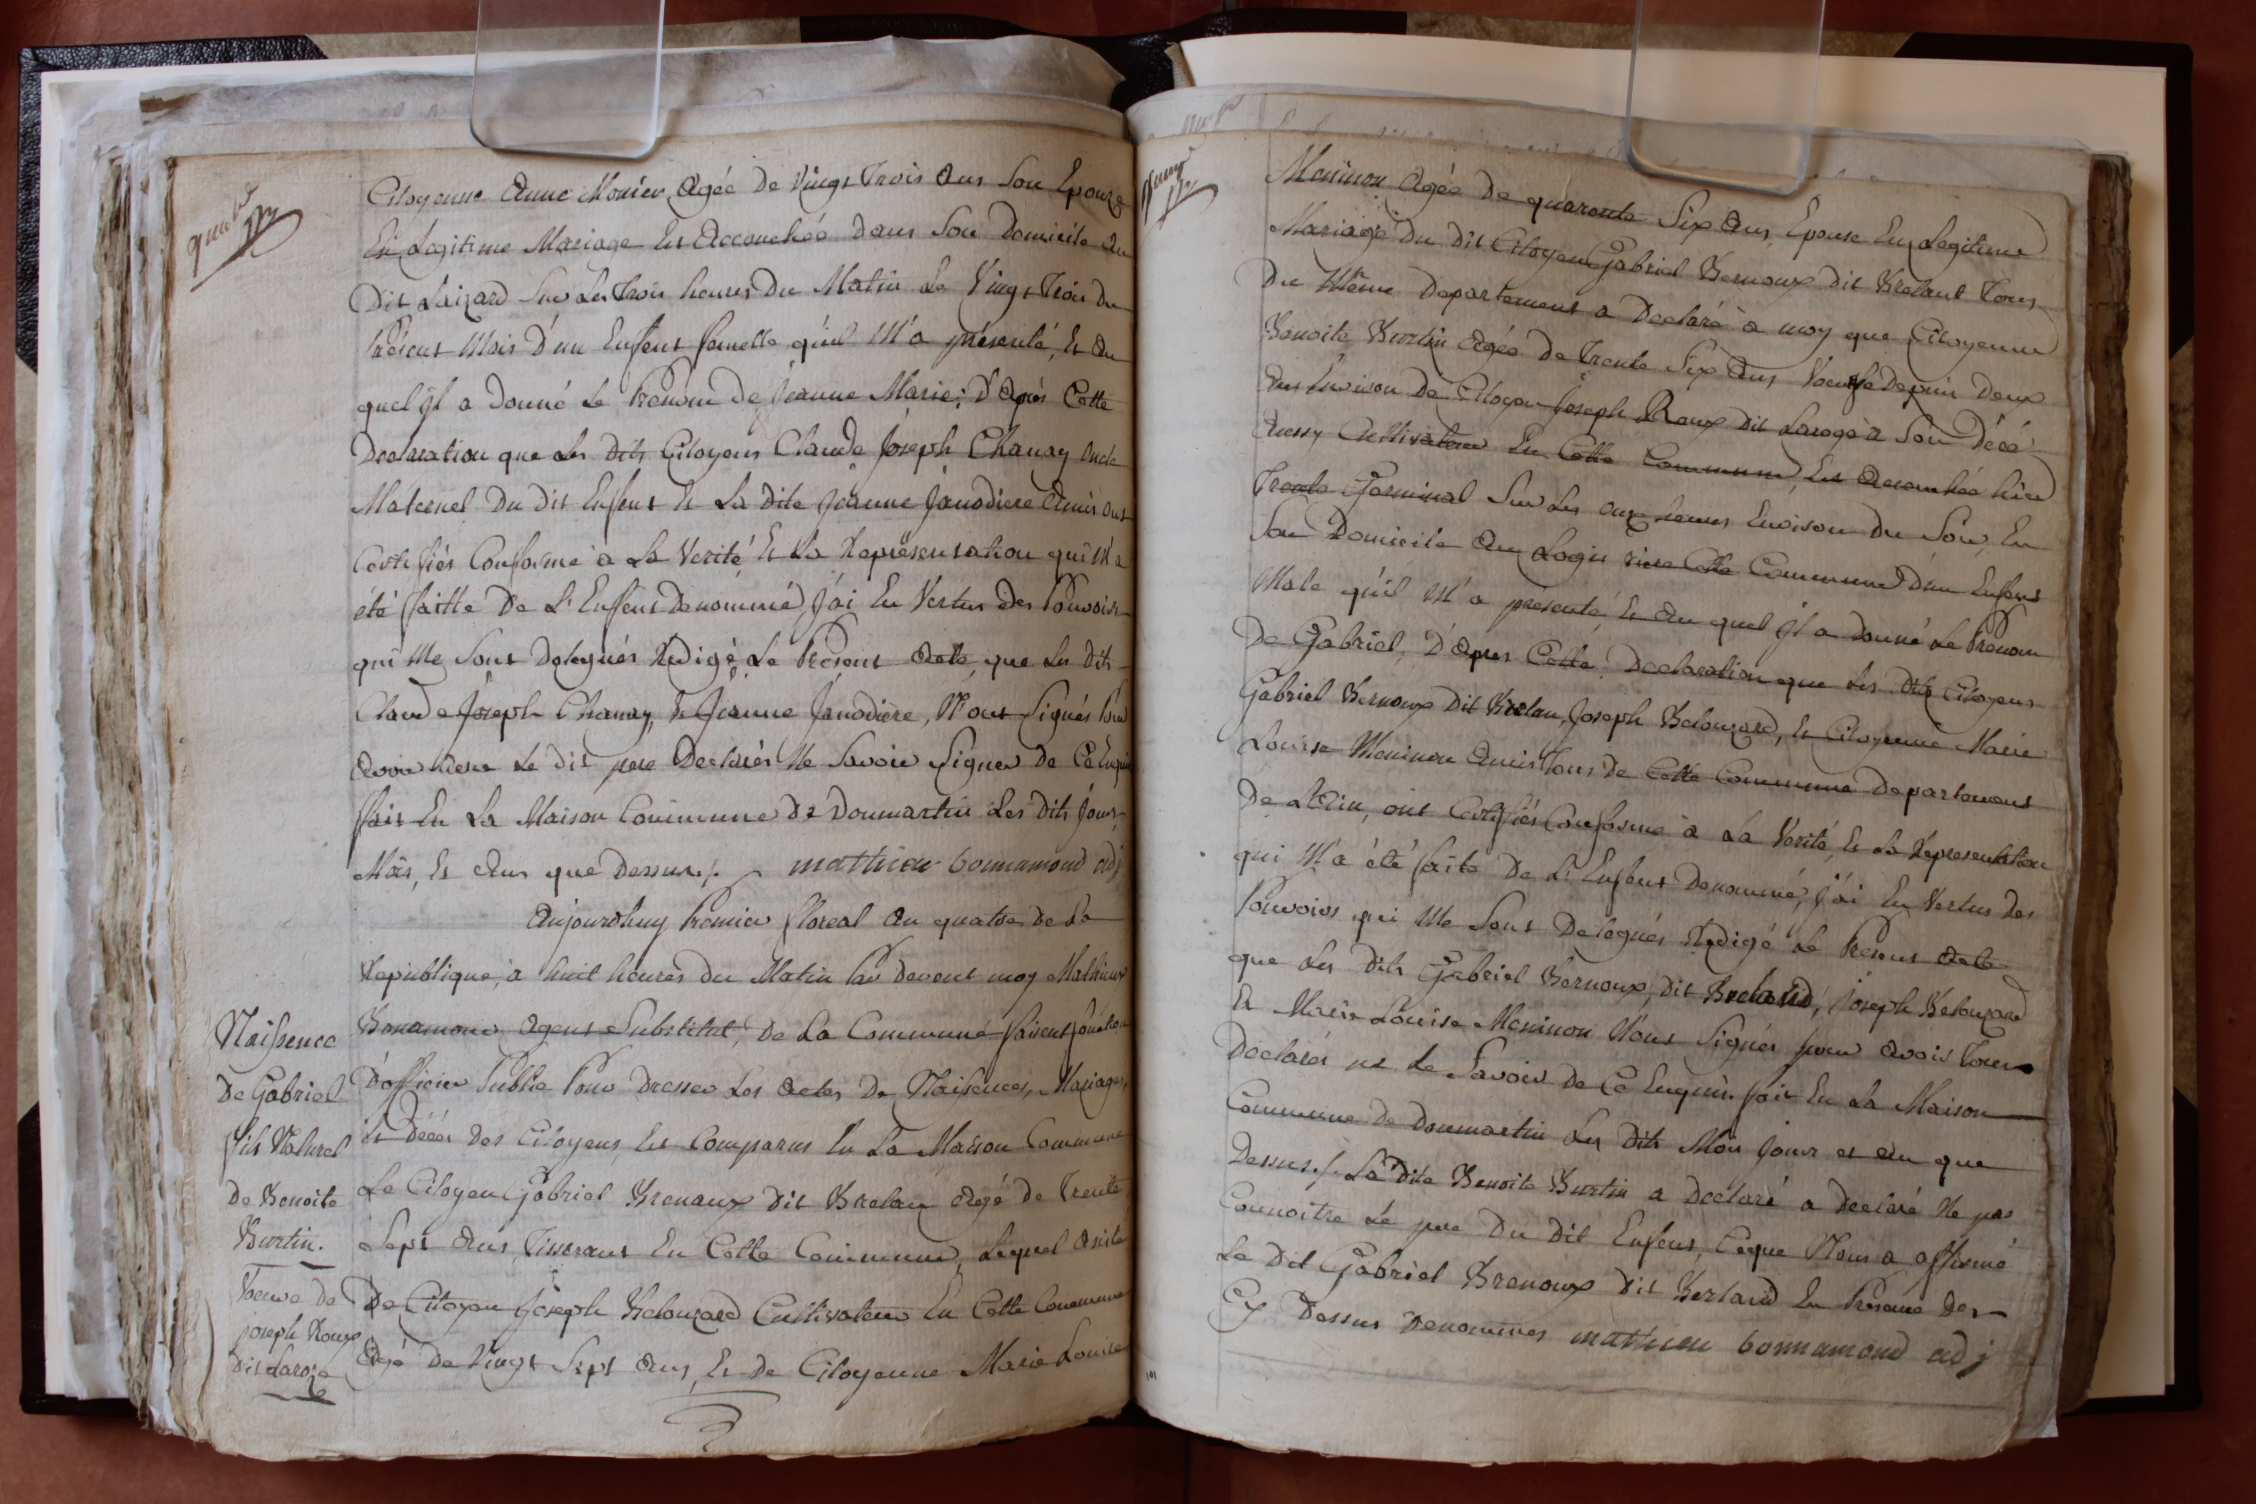 Citoyenne Anne Monier Agée de Vingt Trois Ans Son Epouze
En Legitime Mariage Est Accouchée dans Son Domicile Au
Dit Laizard Sur Les Trois heures Du Matin Le Vingt Trois du
Présent Mois D'un Enfent femelle qu'il M'a présenté, Et Au
quel jl a donné Le Prenom De Jeanne Marie; D'Après Cette
Declaration que Les Dits Citoyens Claude Joseph Chanay Oncle
Maternel Du Dit Enfent Et La Dite Jeanne Janodiere Amis ont
Certifiés Conforme à La Verité Et La Représentation qui M'a
été faitte De L'Enfent Denommé, J'ai En Vertus des Pouvoirs
qui Me Sont Delegués Redigé Le Présent Acte que Les Dits
Claude Joseph Chanay, Et Jeanne Janodiere, N'ont Signés Pour
Avoir Meme Le Dit pere Declarés Ne Savoir Signer De Ce Enquis
fait En La Maison Commune De Domartin Les Dits Jour,
Mois, Et Ans que Dessus ./. mathieu bonnamond adj
Naissence
De Gabriel
fils Naturel
De Benoite
Burtin.
Veuve de
joseph Roux
dit Laroze
Aujourdhuy Premier floreal An quatre De La
Republique, à huit heures du Matin Par Devent moy Mathieux
Bonamond Agent Substitut, De La Commune faisent fonction
D'officier Public Pour Dresser Les Actes De Naissences, Mariages,
Et Décés Des Citoyens, Est Comparus En La Maison Commune
Le Citoyen Gabriel Brenaux Dit Brelan Agé de Trente
Sept Ans, Tisserant En Cette Commune, Lequel Assisté
De Citoyen Joseph Belouzard Cultivateur En Cette Commune
Agé De Vingt Sept Ans, Et De Citoyenne Marie Louise
Meninon Agée De quarente Six Ans, Epouse En Legitime
Mariage Du Dit Citoyen Gabriel Bernoux Dit Breland Tous
Du Même Departement a Declaré à moy que Citoyenne
Benoite Burtin Agée De Trente Six Ans Veuve Depuis Deux
Ans Environ De Citoyen Joseph Roux Dit Laroze à Son Décé
Aussy Cultivateur En Cette Commune, Est Accouchée hier
Trente Germinal Sur Les onze heures Environ Du Soir, En
Son Domicile Au Logis riere Cette Commune D'un Enfent
Male qu'il M'a présenté, Et Au quel jl a donné Le Prenom
De Gabriel, D'Apres Cette Declaration que Les Dits Citoyens
Gabriel Bernoux Dit Brelan, Joseph Belouzard, Et Citoyenne Marie
Louise Meninon Amis Tous De Cette Commune Departement
De L'Ain, ont Certifiés Conforme à La Verité, Et La Representation
qui M'a été faite De L'Enfent Denommé, j'ai En Vertus Des
Pouvoirs qui Me Sont Delegués Redigé Le Present Acte
que Les Dits Gabriel Bernoux, Dit Breland, Joseph Belouzard
Et Marie Louise Meninon N'ont Signés pour Avoir Tous
Declarés ne Le Savoir De Ce Enquis. fait En La Maison
Commune De Domartin Les Dits Mois Jour et An que
Dessus ./. La Dite Benoite Burtin a Declaré a Declaré Ne pas
Connoitre Le pere Du Dit Enfent, Ceque Nous a affirmé
Le Dit Gabriel Brenoux Dit Berland En Présence Des
Cy Dessus Denommes mathieu bonnamond adj